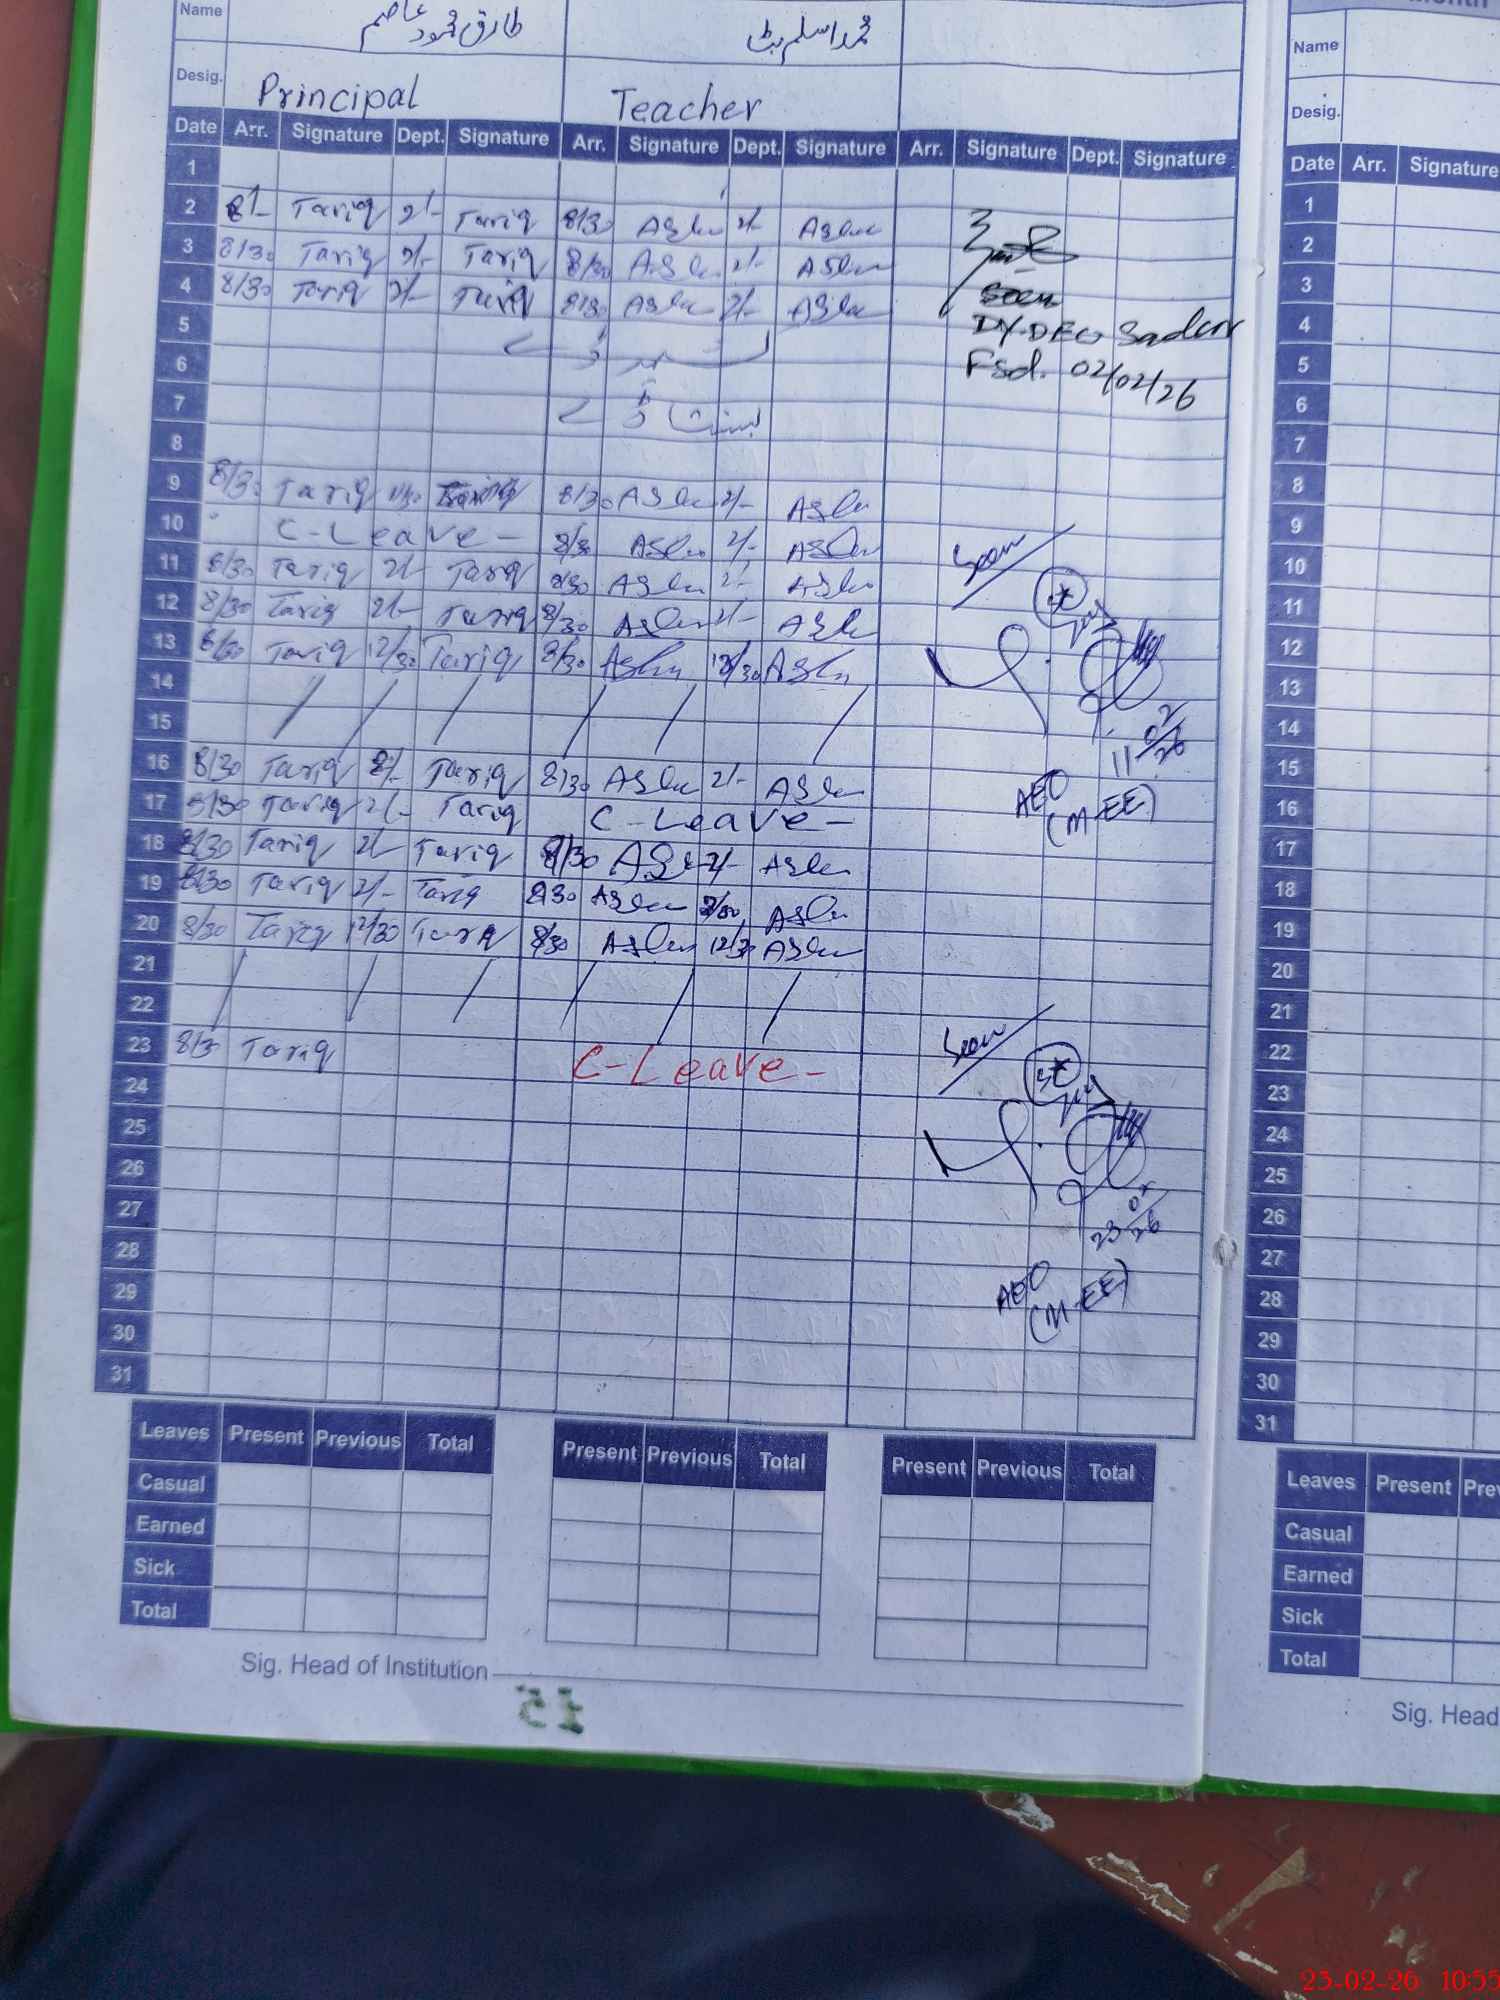 Month
Name طارق محمود عاصم محمد اسلم بٹ
Desig. Principal Teacher
Date Arr. Signature Dept. Signature Arr. Signature Dept. Signature Arr. Signature Dept. Signature
1
2 8/- Tariq 2/- Tariq 8/30 Aslam 2/- Aslam
3 8/30 Tariq 2/- Tariq 8/30 Aslam 2/- Aslam
4 8/30 Tariq 2/- Tariq 8/30 Aslam 2/- Aslam
Seen
DY.DEO Sadar
Fsd. 02/02/26
5
6
7 بسنت
8
9 8/30 Tariq 11/30 Tariq 8/30 Aslam 2/- Aslam
10 C-Leave- 8/30 Aslam 2/- Aslam
11 8/30 Tariq 2/- Tariq 8/30 Aslam 2/- Aslam
Seen
12 8/30 Tariq 2/- Tariq 8/30 Aslam 2/- Aslam
13 8/30 Tariq 12/30 Tariq 8/30 Aslam 12/30 Aslam
14
15
11 02/26
16 8/30 Tariq 2/- Tariq 8/30 Aslam 2/- Aslam
AEO
(M-EE)
17 8/30 Tariq 2/- Tariq C-Leave-
18 8/30 Tariq 2/- Tariq 8/30 Aslam 2/- Aslam
19 8/30 Tariq 2/- Tariq 8/30 Aslam Aslam
20 8/30 Tariq 12/30 Tariq 8/30 Aslam 12/30 Aslam
21
22
23 8/30 Tariq C-Leave-
Seen
24
25
26
27
23 02/26
28
AEO
(M-EE)
29
30
31
Leaves Present Previous Total Present Previous Total Present Previous Total
Casual
Earned
Sick
Total
Sig. Head of Institution
Name
Desig.
Date Arr. Signature
1
2
3
4
5
6
7
8
9
10
11
12
13
14
15
16
17
18
19
20
21
22
23
24
25
26
27
28
29
30
31
Leaves Present Prev
Casual
Earned
Sick
Total
Sig. Head
23-02-26 10:55